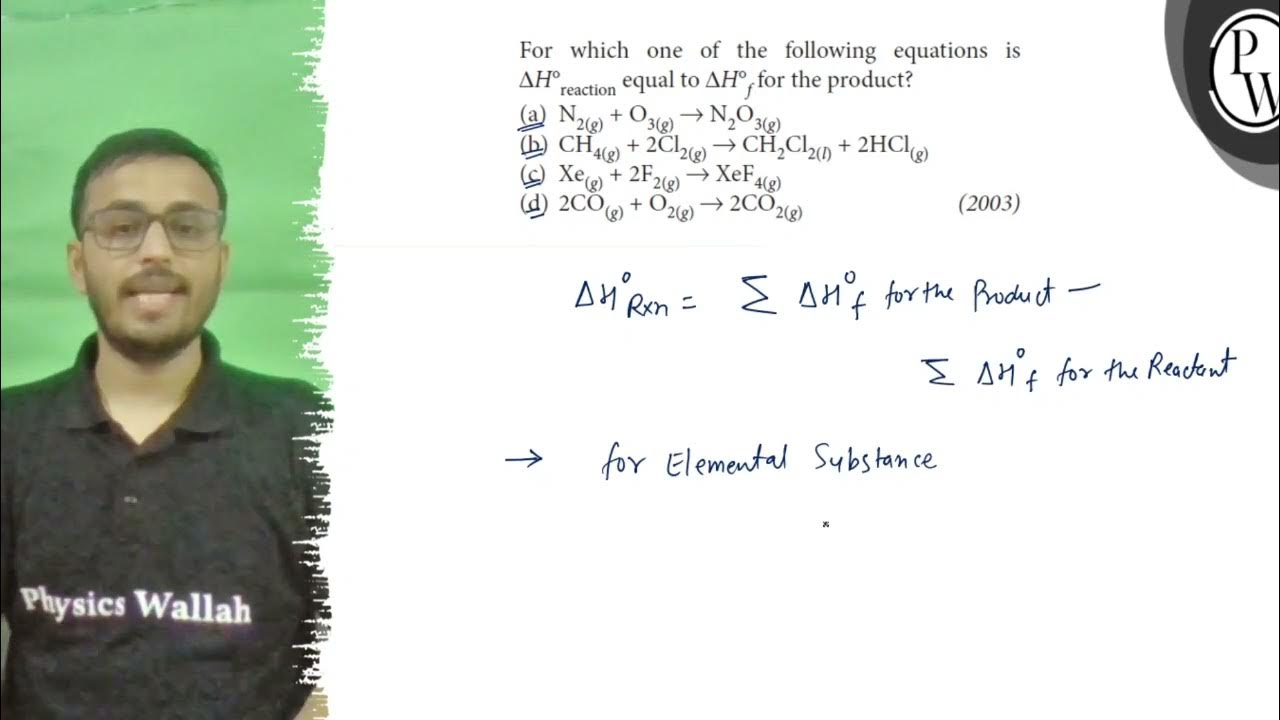 For which one of the following equations is
ΔH°reaction equal to ΔH°f for the product?
(a) N2(g) + O3(g) → N2O3(g)
(b) CH4(g) + 2Cl2(g) → CH2Cl2(l) + 2HCl(g)
(c) Xe(g) + 2F2(g) → XeF4(g)
(d) 2CO(g) + O2(g) → 2CO2(g) (2003)
ΔH°Rxn = Σ ΔH°f for the Product —
Σ ΔH°f for the Reactant
→ for Elemental Substance
Physics Wallah
PW